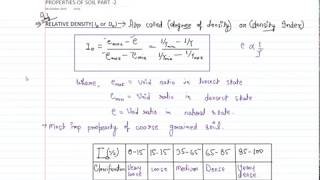 PROPERTIES OF SOIL PART -2
RELATIVE DENSITY (I_D or D_R) → Also called (degree of density) or (Density Index)
I_D = (e_max - e)/(e_max - e_min) = (1/γ_min - 1/γ)/(1/γ_min - 1/γ_max) e α 1/γ
where, e_max = Void ratio in loosest state
e_min = Void ratio in densest state
e = Void ratio in natural state.
→ Most imp property of coarse grained soil.
I_D (%) 0-15 15-35 35-65 65-85 85-100
Classification Very loose loose Medium Dense Very dense